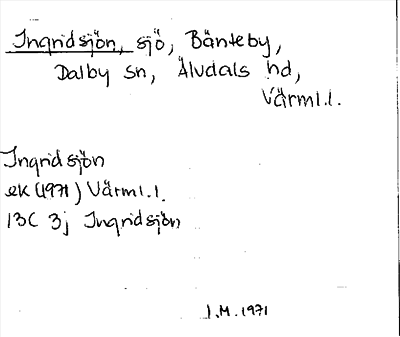 Ingridsjön, sjö, Bänteby,
Dalby sn, Älvdals hd,
Värml.l.
Ingridsjön
ek (1971) Värml.l.
13C 3j Ingridsjön
I.M. 1971